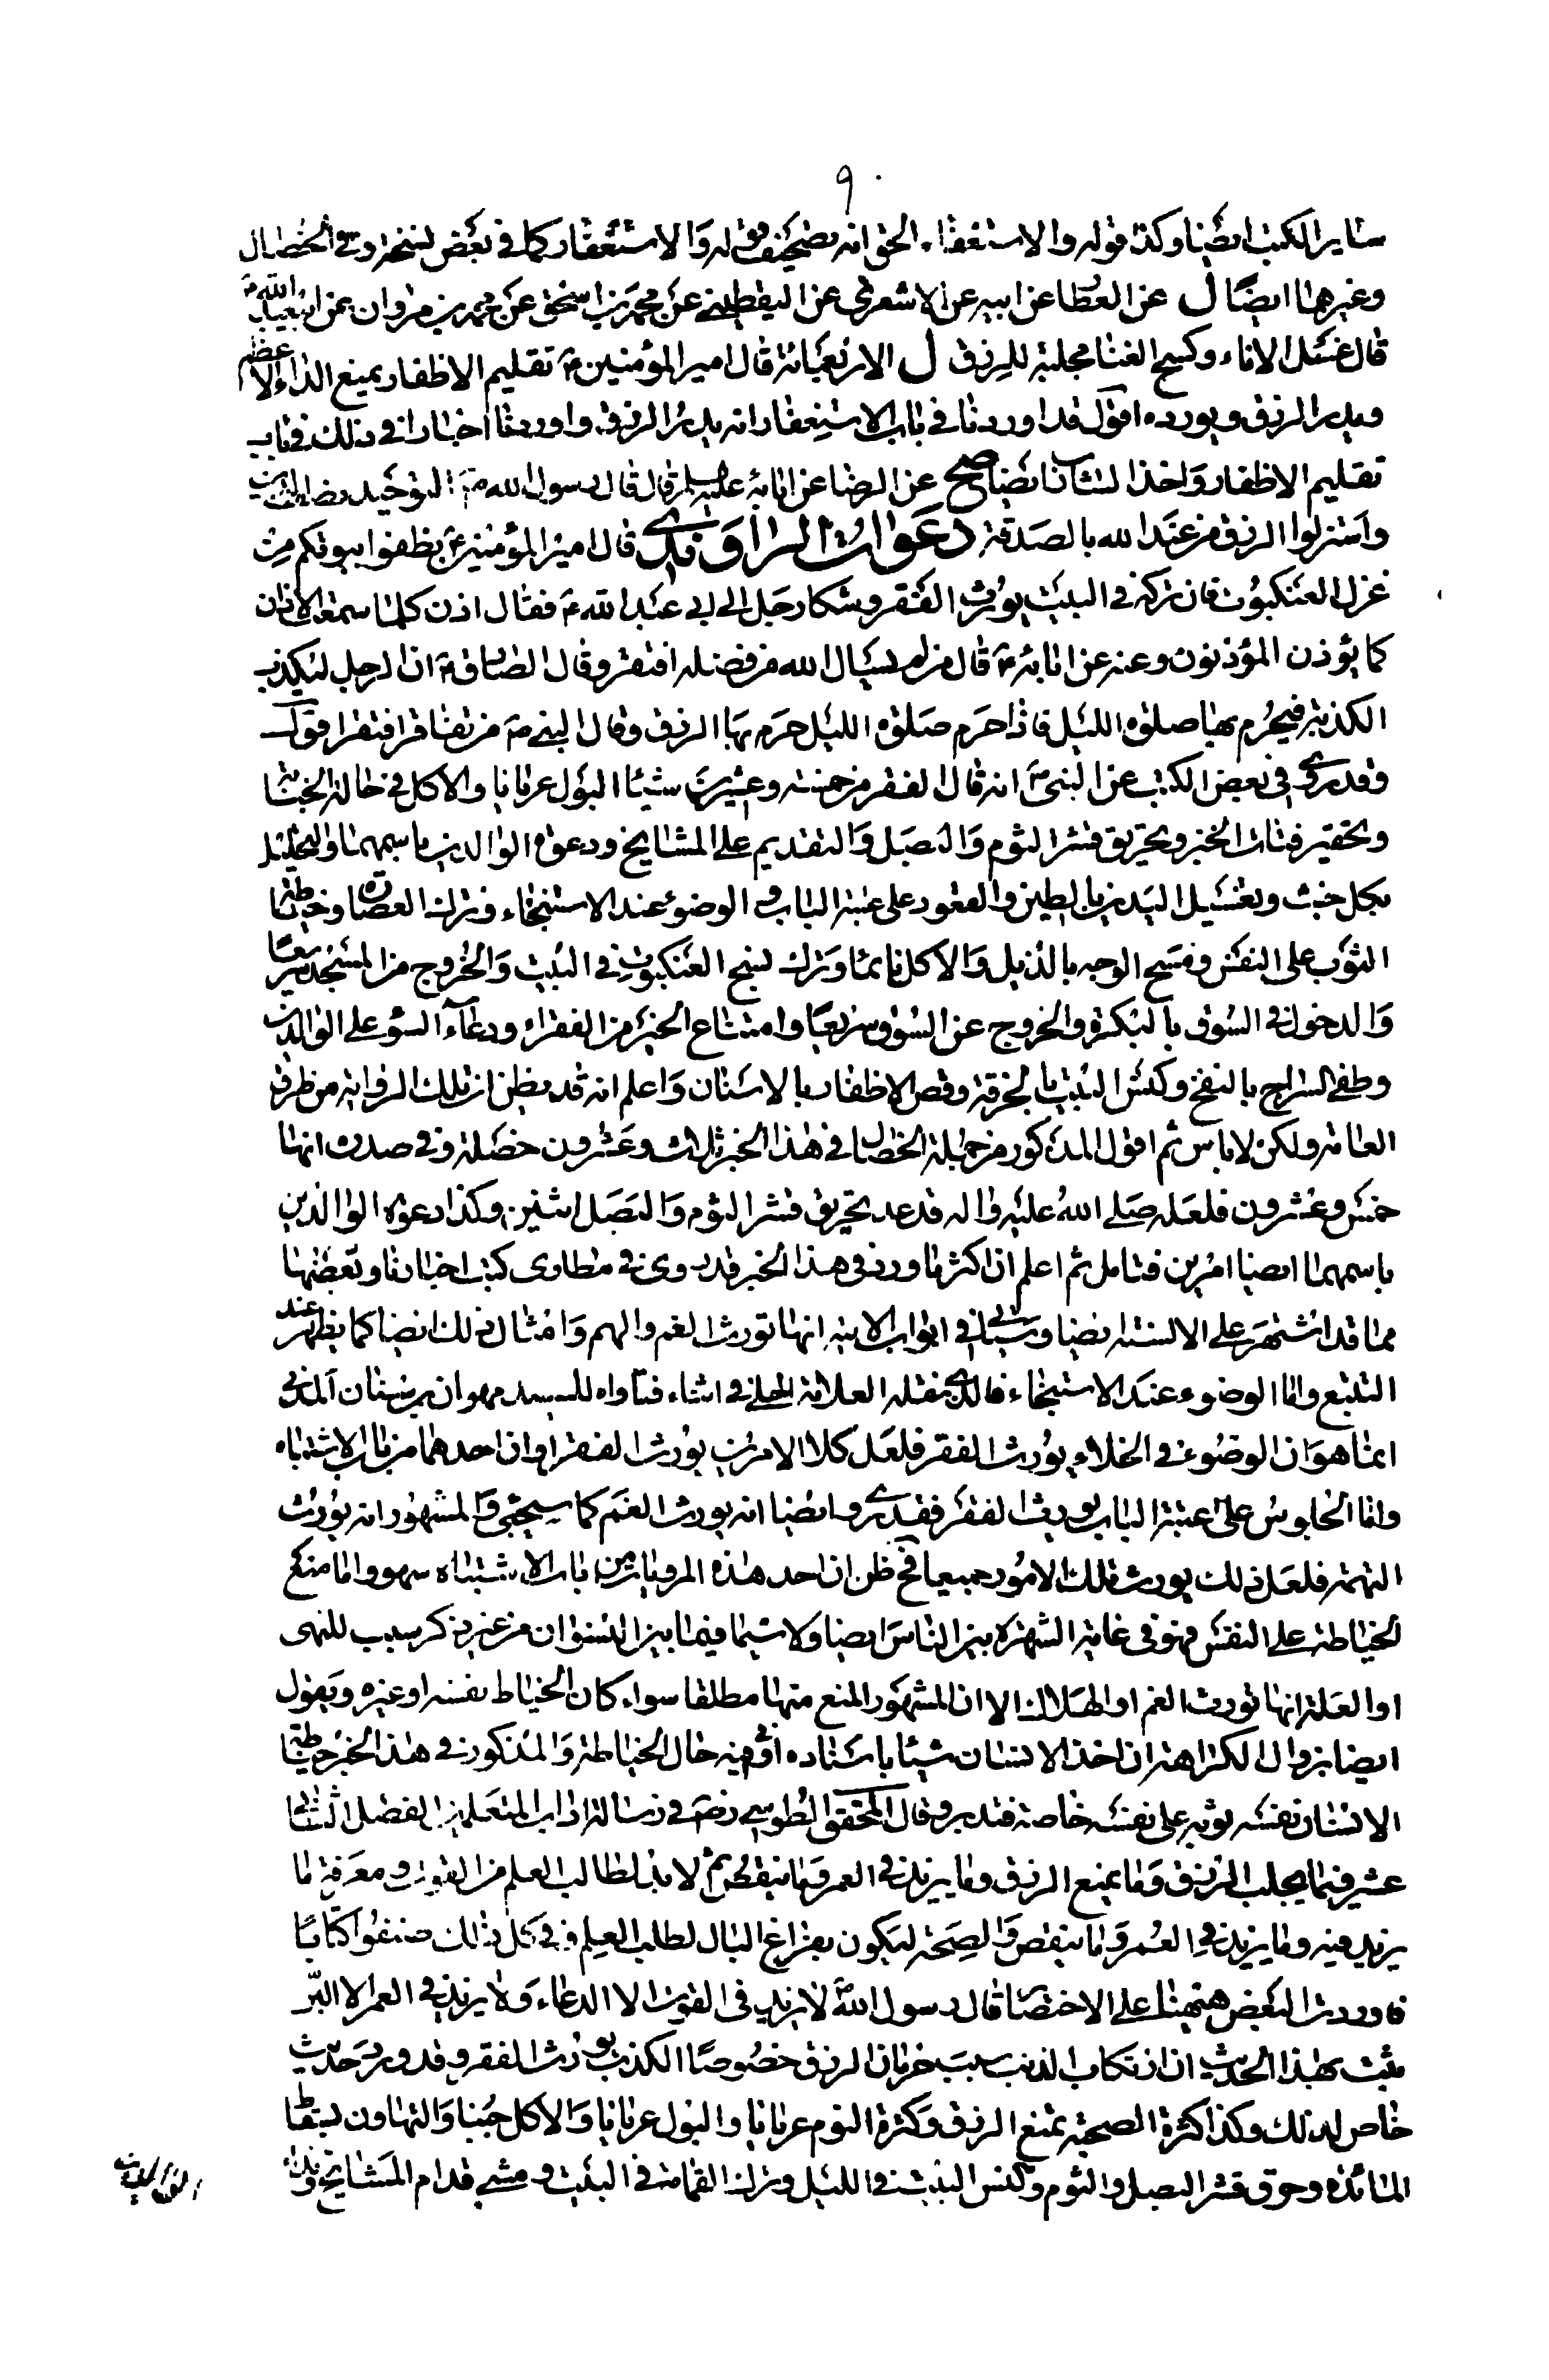 ٩٠
ساير الكتب ايضا وكذا قوله والاستغفاء الحق انه تصحيف قوله والاستغفار كما في بعض نسخ الخصال
وغيرها ايضا ل عن العطا عن ابيه عن الاشعري عن اليقطيني عن محمد بن اسحق عن محمد بن مروان عمن ابي عبد الله ع
قال غسل الاناء وكسح الفنا مجلبة للرزق ل الاربعمائة قال امير المؤمنين ع تقليم الاظفار يمنع الداء الاعظم
ويدر الرزق ويورده اقول قد اوردنا في باب الاستغفار انه يدر الرزق واوردنا اخبارا في ذلك في باب
تقليم الاظفار واخذ الشارب ايضا صح عن الرضا عن ابائه عليهم السلم قال قال رسول الله ص التوحيد نصف الدين
واستنزلوا الرزق من عند الله بالصدقة دعوات الراوندي قال امير المؤمنين ع نظفوا بيوتكم من
غزل العنكبوت فان تركه في البيت يورث الفقر وشكا رجل الى ابي عبد الله ع فقال اذن كلما سمعت الاذان
كما يؤذن المؤذنون وعنه عن ابائه ع قال من لم يسال الله من فضله افتقر وقال الصادق ع ان الرجل ليكذب
الكذبة فيحرم بها صلوة الليل فاذا حرم صلوة الليل حرم بها الرزق وقال النبي ص من تفاقر افتقر اقول
وقد روي في بعض الكتب عن النبي ص انه قال الفقر من خمسة وعشرين شيئا البول عريانا والاكل في حالة الجنابة
وتحقير فتات الخبز وتحريق قشر الثوم والبصل والتقديم على المشايخ ودعوة الوالدين باسمهما والتخليل
بكل خشب وتغسيل اليدين بالطين والقعود على عتبة الباب و الوضوء عند الاستنجاء وترك القصارة وخياطة
الثوب على النفس ومسح الوجه بالذيل والاكل نائما وترك نسج العنكبوت في البيت والخروج من المسجد سريعا
والدخول في السوق بالبكرة والخروج عن السوق سريعا وامتناع الخبز من الفقراء ودعاء السوء على الوالدين
وطفي السراج بالنفخ وكنس البيت بالخرقة وقص الاظفار بالاسنان واعلم انه قد يظن ان تلك الرواية من طرق
العامة ولكن لا باس ثم اقول المذكور من جملة الخصال في هذا الخبر ثلاث وعشرون خصلة وفي صدره انها
خمس وعشرون فلعله صلى الله عليه واله قد عد تحريق قشر الثوم والبصل اثنين وكذا دعوة الوالدين
باسمهما ايضا امرين فتامل ثم اعلم ان اكثر ما ورد في هذا الخبر قد روى في مطاوى كتب اخبارنا وبعضها
مما قد اشتهر على الالسنة ايضا وسياتي في ابواب الاتية انها تورث الغم والهم وامثال ذلك ايضا كما يظهر عند
التتبع واما الوضوء عند الاستنجاء فالذي نقله العلامة الحلي في اثناء فتاواه للسيد مهنا بن سنان المدني
انما هو ان الوضوء في الخلاء يورث الفقر فلعل كلا الامرين يورث الفقر او ان احدهما من باب الاشتباه
واما الجلوس على عتبة الباب يورث الفقر فقد روي ايضا انه يورث الغم كما سيجئ والمشهور انه يورث
التهمة فلعل ذلك يورث تلك الامور جميعا فح ظن ان احد هذه المرويات من باب الاشتباه سهو واما منع
الخياطة على النفس فهو في غاية الشهرة بين الناس ايضا ولا سيما فيما بين النسوان من غير ذكر سبب للنهى
او العلة انها تورث الغم او الهلاك الا ان المشهور المنع منها مطلقا سواء كان الخياط نفسه او غيره ويقول
ايضا بزوال الكراهة ان اخذ الانسان شيئا باسنانه او في فيه حال الخياطة والمذكور في هذا الخبر خياطة
الانسان نفسه ثوبه على نفسه خاصة فتدبر وقال المحقق الطوسي رض في رسالة اداب المتعلمين الفصل الثاني
عشر فيما يجلب الرزق وما يمنع الرزق وما يزيد في العمر وما ينقص ثم لا بد لطالب العلم من القوت و معرفة ما
يزيد فيه وما يزيد في العمر وما ينقص والصحة ليكون بفراغ البال لطلب العلم وفي كل ذلك صنفوا كتابا
فاوردت البعض هيهنا على الاختصار قال رسول الله ص لا يزيد في القوت الا الدعاء ولا يزيد في العمر الا البر
ثبت بهذا الحديث ان ارتكاب الذنب سبب حرمان الرزق خصوصا الكذب يورث الفقر وقد ورد حديث
خاص لذلك وكذا كثرة الصحبة تمنع الرزق وكثرة النوم عريانا والبول عريانا والاكل جنبا والتهاون بسقاط
المائدة وحرق قشر البصل والثوم وكنس البيت في الليل وترك القمامة في البيت و مشي قدام المشايخ ونداء
الوالدين